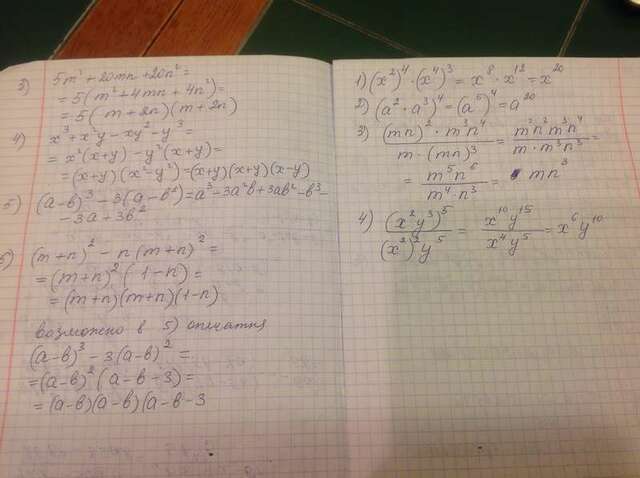 3) 5m² + 20mn + 20n² =
= 5(m² + 4mn + 4n²) =
= 5(m + 2n)(m + 2n)
4) x³ + x²y - xy² - y³ =
= x²(x+y) - y²(x+y) =
= (x+y)(x² - y²) = (x+y)(x+y)(x-y)
5) (a-b)³ - 3(a-b²) = a³ - 3a²b + 3ab² - b³ -
- 3a + 3b²
6) (m+n)² - n(m+n)² =
= (m+n)²(1-n) =
= (m+n)(m+n)(1-n)
возможено в 5) опечатка
(a-b)³ - 3(a-b)² =
= (a-b)²(a-b-3) =
= (a-b)(a-b)(a-b-3
1) (x²)⁴ · (x⁴)³ = x⁸ · x¹² = x²⁰
2) (a² · a³)⁴ = (a⁵)⁴ = a²⁰
3) (mn)² · m³n⁴ / m · (mn)³ = m²n²m³n⁴ / m · m³n³ =
= m⁵n⁶ / m⁴ · n³ = mn³
4) (x²y³)⁵ / (x²)²y⁵ = x¹⁰y¹⁵ / x⁴y⁵ = x⁶y¹⁰